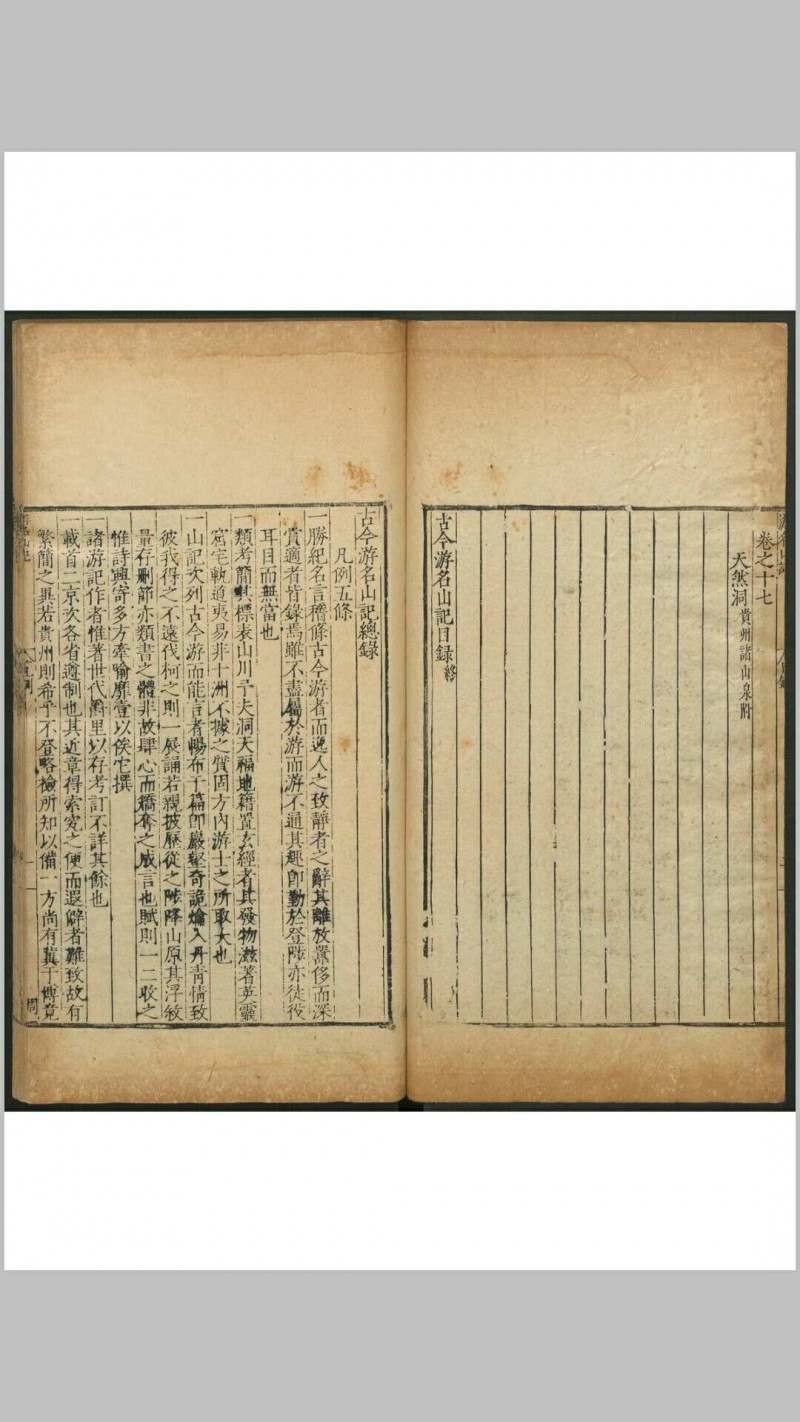 卷之十七
天然洞貴州諸山泉附
古今游名山記目錄終
古今游名山記總錄
凡例五條
一勝紀名言稽條古今游者而逸人之致靜者之辭其離放羈侈而深
賞適者皆錄焉雖不盡屬於游而游不通其趣即勤於登陟亦徒役
耳目而無當也
一類考簡其標表山川予夫洞天福地籍置玄經者其發物滋著英靈
窟宅軌道夷易非十洲不據之質固方內游士之所取大也
一山記次列古今游而能言者暢布于篇即巖壑奇詭爚入丹青情致
彼我得之不遠伐柯之則一展誦若親披歷從之陟降山原其浮敘
量存刪節亦類書之體非故肆心而矯奪之咸言也賦則一二收之
惟詩興寄多方牽喻靡壹以俟它撰
諸游記作者惟著世代爵里以存考訂不詳其餘也
一載首二京次各省遵制也其近章得索究之便而遐僻者難致故有
繁簡之異若貴州則希乎不登略檢所知以備一方尚有冀于博竟